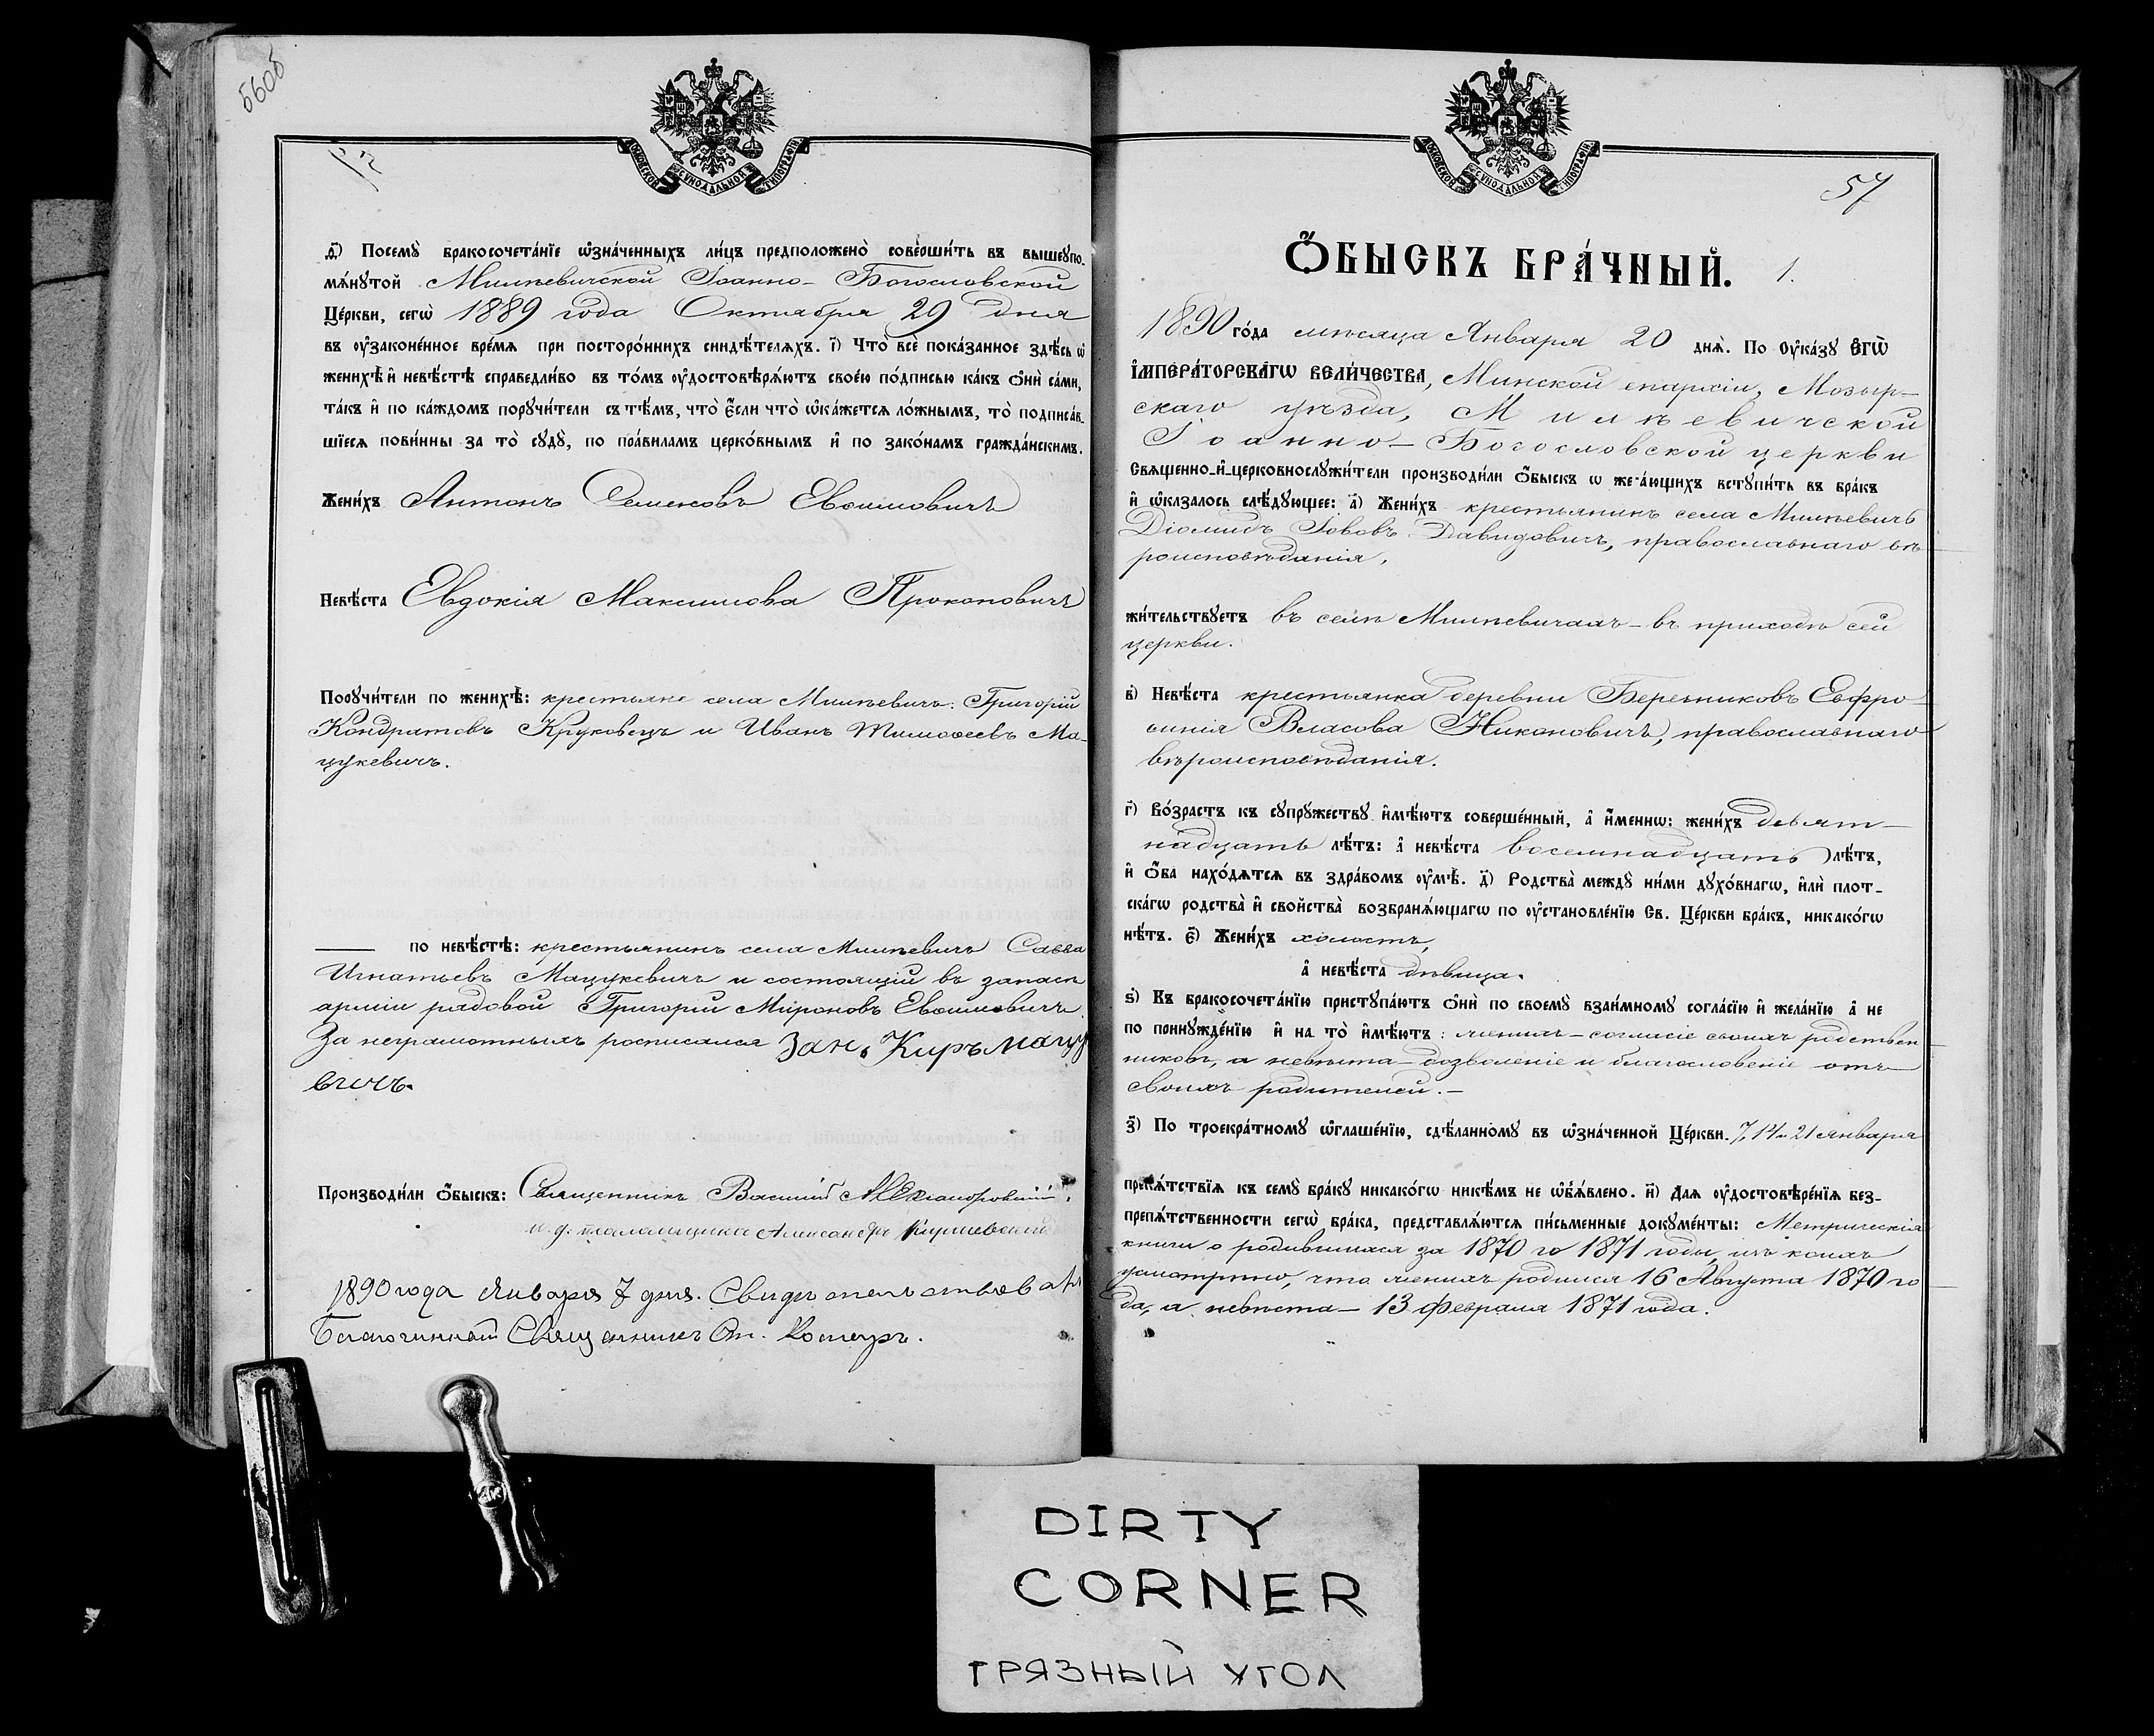 560б
МОСКОВСКОЙ СѴНОДАЛЬНОЙ ТИПОГРАФІИ
ѳ҃) Посемꙋ̀ бракосочета́нїе ѡ҆зна́ченныхъ ли́цъ предположено̀ соверши́ть въ вышеꙋпо-
мѧ́нꙋтой Милѣвичской Іоанно-Богословской
Це́ркви, сегѡ̀ 1889 года Октября 29 дня
въ ᲂу҆законе́нное вре́мѧ при посторо́ннихъ свидѣ́телѧхъ. і҃) Что̀ всѐ пока́занное здѣ́сь ѡ҆
женихѣ̀ и҆ невѣ́стѣ справедли́во въ то́мъ ᲂу҆достовѣрѧ́ютъ свое́ю по́дписью ка́къ ѻ҆нѝ са́ми,
та́къ и҆ по ка́ждомъ порꙋчи́тели съ тѣ́мъ, что̀ є҆́сли что̀ ѡ҆ка́жетсѧ ло́жнымъ, то̀ подписа́в-
шїесѧ пови́нны за то̀ сꙋдꙋ̀, по пра́виламъ церко́внымъ и҆ по зако́намъ гражда́нскимъ.
Жени́хъ Антонъ Семеновъ Евтимовичъ
Невѣ́ста Евдокія Максимова Прокоповичъ
Порꙋчи́тели по женихѣ̀: крестьяне села Милѣвичъ: Григорій
Кондратовъ Круковецъ и Иванъ Тимофеевъ Ма-
цукевичъ.
по невѣ́стѣ: крестьянинъ села Милѣвичъ Савва
Игнатьевъ Мацукевичъ и состоящій въ запасѣ
арміи рядовой Григорій Мироновъ Евтимовичъ.
За неграмотныхъ росписался Зан. Киръ Мацу
вичъ.
Производи́ли ѻ҆́быскъ: Священникъ Василій
и. д. псаломщика Александръ
1890 года Января 7 дня. Свидѣтельствовалъ
Благочинный Священникъ
МОСКОВСКОЙ СѴНОДАЛЬНОЙ ТИПОГРАФІИ
57
Ѻ҆́БЫСКЪ БРА́ЧНЫЙ. 1.
1890 го́да мѣсяца Января 20 днѧ̀. По ᲂу҆ка́зꙋ Є҆ГѠ̀
І҆МПЕРА́ТОРСКАГѠ ВЕЛИ́ЧЕСТВА, Минской епархіи, Мозыр-
скаго уѣзда, Милѣвичской
Іоанно-Богословской церкви
Свѧщенно-и҆-церковнослꙋжи́тели производи́ли ѻ҆́быскъ ѡ же́лающихъ встꙋпи́ть въ бра́къ
и҆ ѡ҆казалось слѣ́дꙋющее: а҃) Жени́хъ крестьянинъ села Милѣвичъ
Діомидъ Іововъ Давидовичъ, православнаго вѣ-
роисповѣданія,
жи́тельствꙋетъ въ селѣ Милѣвичахъ - въ приходѣ сей
церкви.
в҃) Невѣ́ста крестьянка деревни Беречниковъ Евфро-
синія Власова Никоновичъ, православнаго
вѣроисповѣданія.
г҃) Во́зрастъ къ сꙋпрꙋ́жествꙋ и҆мѣ́ютъ соверше́нный, а҆ и҆́меннѡ: жени́хъ девят-
надцать лѣ́тъ: а҆ невѣ́ста восемнадцать лѣ́тъ,
и҆ ѻ҆́ба нахо́дѧтсѧ въ здра́вомъ ᲂу҆мѣ̀. д҃) Родства̀ междꙋ̀ ни́ми дꙋхо́внагѡ, и҆лѝ плот-
ска́гѡ родства̀ и҆ свойства̀ возбранѧ́ющагѡ по ᲂу҆становле́нїю Св. Це́ркви бра́къ, никако́гѡ
нѣ́тъ. є҃) Жени́хъ холостъ,
а҆ невѣ́ста дѣвица.
ѕ҃) Къ бракосочета́нїю пристꙋпа́ютъ ѻ҆нѝ по своемꙋ̀ взаи́мномꙋ согла́сїю и҆ жела́нїю а҆ не
по принꙋжде́нїю и҆ на то̀ и҆мѣ́ютъ: женихъ - согласіе своихъ родствен-
никовъ, а невѣста - дозволеніе и благословеніе отъ
своихъ родителей. -
з҃) По троекра́тномꙋ ѡ҆глаше́нїю, сдѣ́ланномꙋ въ ѡ҆зна́ченной Це́ркви. 7, 14 и 21 января
препѧ́тствїѧ къ семꙋ̀ бра́кꙋ никако́гѡ никѣ́мъ не ѡ҆б̾ѧ́влено. и҃) Длѧ ᲂу҆достовѣре́нїѧ без-
препѧ́тственности сегѡ̀ бра́ка, представлѧ́ютсѧ пи́сьменные докꙋме́нты: Метрическія
книги о родившихся за 1870 го 1871 годы, изъ коихъ
усмотрѣно, что женихъ родился 16 Августа 1870 го-
да, а невѣста - 13 Февраля 1871 года.
DIRTY
CORNER
ГРЯЗНЫЙ УГОЛ